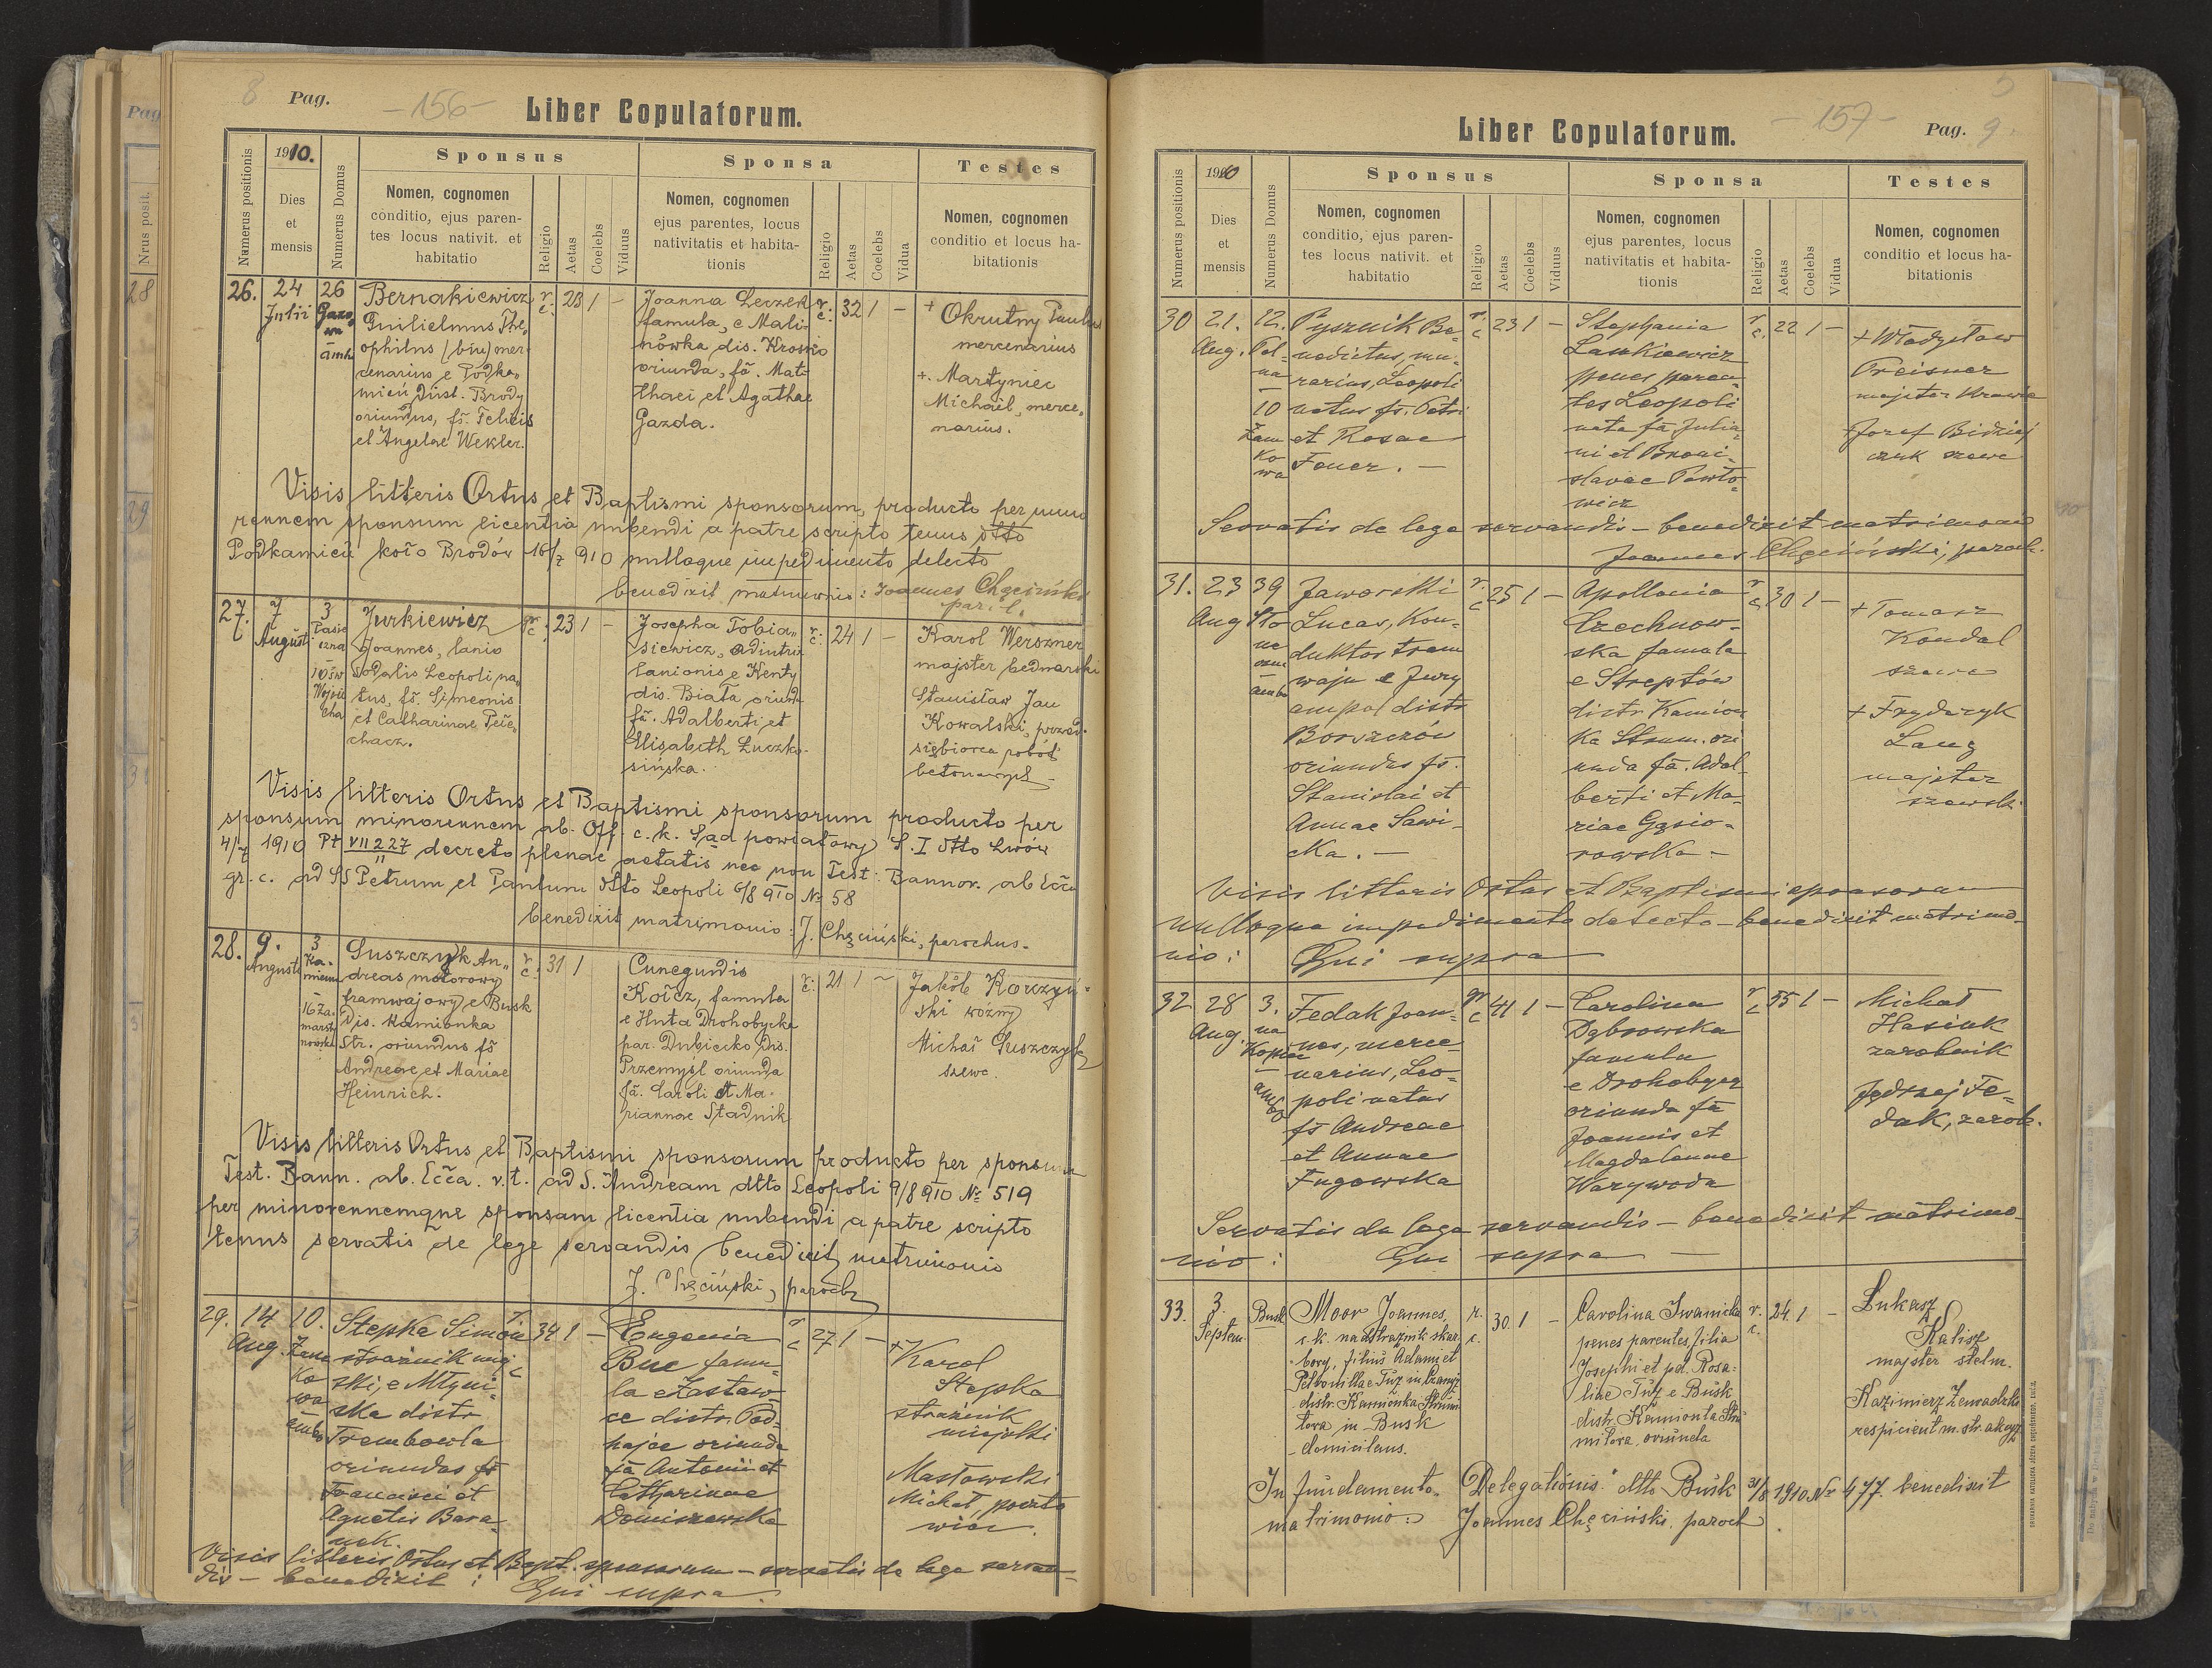 8 Pag. -156-
Liber Copulatorum.
Numerus positionis
1910.
Dies et mensis
Numerus Domus
Sponsus
Nomen, cognomen
conditio, ejus paren-
tes locus nativit. et
habitatio
Religio
Aetas
Coelebs
Viduus
Sponsa
Nomen, cognomen
ejus parentes, locus
nativitatis et habita-
tionis
Religio
Aetas
Coelebs
Vidua
Testes
Nomen, cognomen
conditio et locus ha-
bitationis
26.
24
Julii
26
Gazo-
wa
ambo
Bernakiewicz
Guilielmus The-
ophilus (biu) mer-
cenarius e Podka-
mień Dist. Brody
oriundus, fs. Felicis
et Angelae Wekler.
r. c.
23 1 -
Joanna Leczek
famula, e Mali-
nówka dis. Krosno
oriunda, fa. Mat-
thaei et Agathae
Gazda.
r. c.
32 1 -
+ Okrutny Paulus
mercenarius
+. Martyniec
Michaël, merce-
narius.
Visis litteris Ortus et Baptismi sponsorum, producto per mino
rennem sponsum licentia nubendi a patre scripto tenus dtto
Podkamień koło Brodów 16/7 910 nulloque impedimento detecto
benedixit matrimonio: Joannes Chęciński
par. l.
27.
7
Augusti
3
Pasie
czna
10 św
Wojcie
cha
Jurkiewicz
Joannes, lanio
sodalis Leopoli na-
tus, fs. Simeonis
et Catharinae
gr. c.
23 1 -
Josepha Tobia-
siewicz, adiutrix
lanionis e Kenty
dis. Biała oriunda
fa. Adalberti et
Elisabeth Luczko-
sińska.
r. c.
24 1 -
Karol Werszner
majster bednarski
Stanisław Jan
Kowalski, przed-
siębiorca robót
betonowych
Visis litteris Ortus et Baptismi sponsorum producto per
sponsum minorennem ab. Off. c. k. Sąd powiatowy S. I dtto Lwów
4/7 1910 Pt VII 227/11 decreto plenae aetatis nec non Test: Bannor. ab Ecca
gr. c. ad SS Petrum et Paulum dtto Leopoli 6/8 910 № 58
benedixit matrimonio: J. Chęciński, parochus.
28.
9.
Augusti
3
Ka-
mienna
16 Za-
marsty
nowska
Guszczyk An-
dreas motorowy
tramwajowy e Busk
Dis. Kamionka
Str. oriundus fs
Andreae et Mariae
Heinrich.
r. c.
31 1
Cunegundis
Koicz, famula
e Huta Drohobycka
par. Dubiecko Dis.
Przemyśl oriunda
fa. Caroli et Ma-
riannae Stadnik
r. c.
21 1 -
Jakób Korczyń-
ski woźny
Michał Guszczyk
szewc.
Visis litteris Ortus et Baptismi sponsorum producto per sponsum
Test. Bann. ab. Ecca. r. t. ad S. Andream dtto Leopoli 9/8 910 № 519
per minorennemque sponsam licentia nubendi a patre scripto
tenus servatis de lege servandis benedixit matrimonio
J. Chęciński, paroch
29.
14
Aug.
10.
Zam
ko
wa
ambo
Stepka Simon
strażnik miej
ski, e Młyni-
ska distr
Trembowla
oriundus fs
Francisci et
Agnetis Bara-
nek.
r. c
34 1 -
Eugenia
Buc famu-
la e Zastaw-
ce distr. Pod-
hajce oriunda
fa Antonii et
Catharinae
Doniszewska
r c
27 1 -
+ Karol
Stepka
strażnik
miejski
Masłowski
Michał, poczto
wiec.
Visis litteris Ortus et Bapt. sponsorum - servatis de lege servan-
dis - benedixit: Qui supra.
-157-
Liber Copulatorum.
Pag. 9.
Numerus positionis
1910
Dies et mensis
Numerus Domus
Sponsus
Nomen, cognomen
conditio, ejus paren-
tes locus nativit. et
habitatio
Religio
Aetas
Coelebs
Viduus
Sponsa
Nomen, cognomen
ejus parentes, locus
nativitatis et habita-
tionis
Religio
Aetas
Coelebs
Vidua
Testes
Nomen, cognomen
conditio et locus ha-
bitationis
30
21.
Aug.
12.
Pel-
na
10
Zam
ko
wa
Pysznik Be-
nedictus, mu-
rarius, Leopoli
natus fs. Petri
et Rosae
Fouer. -
r. c
23 1 -
Stephania
Laskiewicz
penes paren-
tes Leopoli
nata fa Julia-
ni et Broni-
slavae Pawło-
wicz
r. c.
22 1 -
+ Władysław
Preisner
majster krawie
+ Jozef Bidziej
czuk szewc
Servatis de lege servandis - benedixit matrimonio
Joannes Chęciński, paroch.
31.
23
Aug
39
Sło
ne
czna
ambo
Jaworski
Lucas, Kon-
duktor tram
waju e Jury
ampol distr
Borszczów
oriundus fs.
Stanislai et
Annae Sawi-
cka. -
r. c
25 1 -
Apollonia
Czechnow-
ska famula
e Streptów
distr Kamion
ka Strum. ori
unda fa. Adal-
berti et Ma-
riae Gąsio-
rowska -
r. c.
30 1 -
+ Tomasz
Kondal
szewc
+ Fryderyk
Lang
majster
szewski
Visis litteris Ortus et Baptismi sponsorum
nulloque impedimento detecto - benedixit matrimo-
nio: Qui supra
32.
28
Aug.
3.
na
Kopiec
ambo
Fedak Joan-
nes, merce-
narius, Leo-
poli natus
fs Andreae
et Annae
Fugowska
gr c
41 1 -
Carolina
Dąbrowska
famula
e Drohobycz
oriunda fa
Joannis et
Magdalenae
Warywoda
r c
55 1 -
Michał
Hasiuk
zarobnik
Jędrzej Fe-
dak, zarob.
Servatis de lege servandis - benedixit matrimo-
nio: Qui supra
33.
3.
Septem.
Busk
Moor Joannes,
c. k. nadstrażnik skar-
bowy, filius Adami et
Petronillae Tuz in
distr. Kamionka Strumi-
łowa in Busk
domicilans.
r. c.
30. 1 -
Carolina Iwanicka
penes parentes, filia
Josephi et pd. Rosa-
liae Tuz e Busk
distr. Kamionka Stru-
miłowa, oriunda
r. c.
24. 1 -
Łukasz
Kalisz
majster stelm.
Kazimierz Zawadzki
respicient m. str. akcyz.
In fundamento Delegationis dtto Busk 31/8 1910 № 477. benedixit
matrimonio: Joannes Chęciński, paroch.